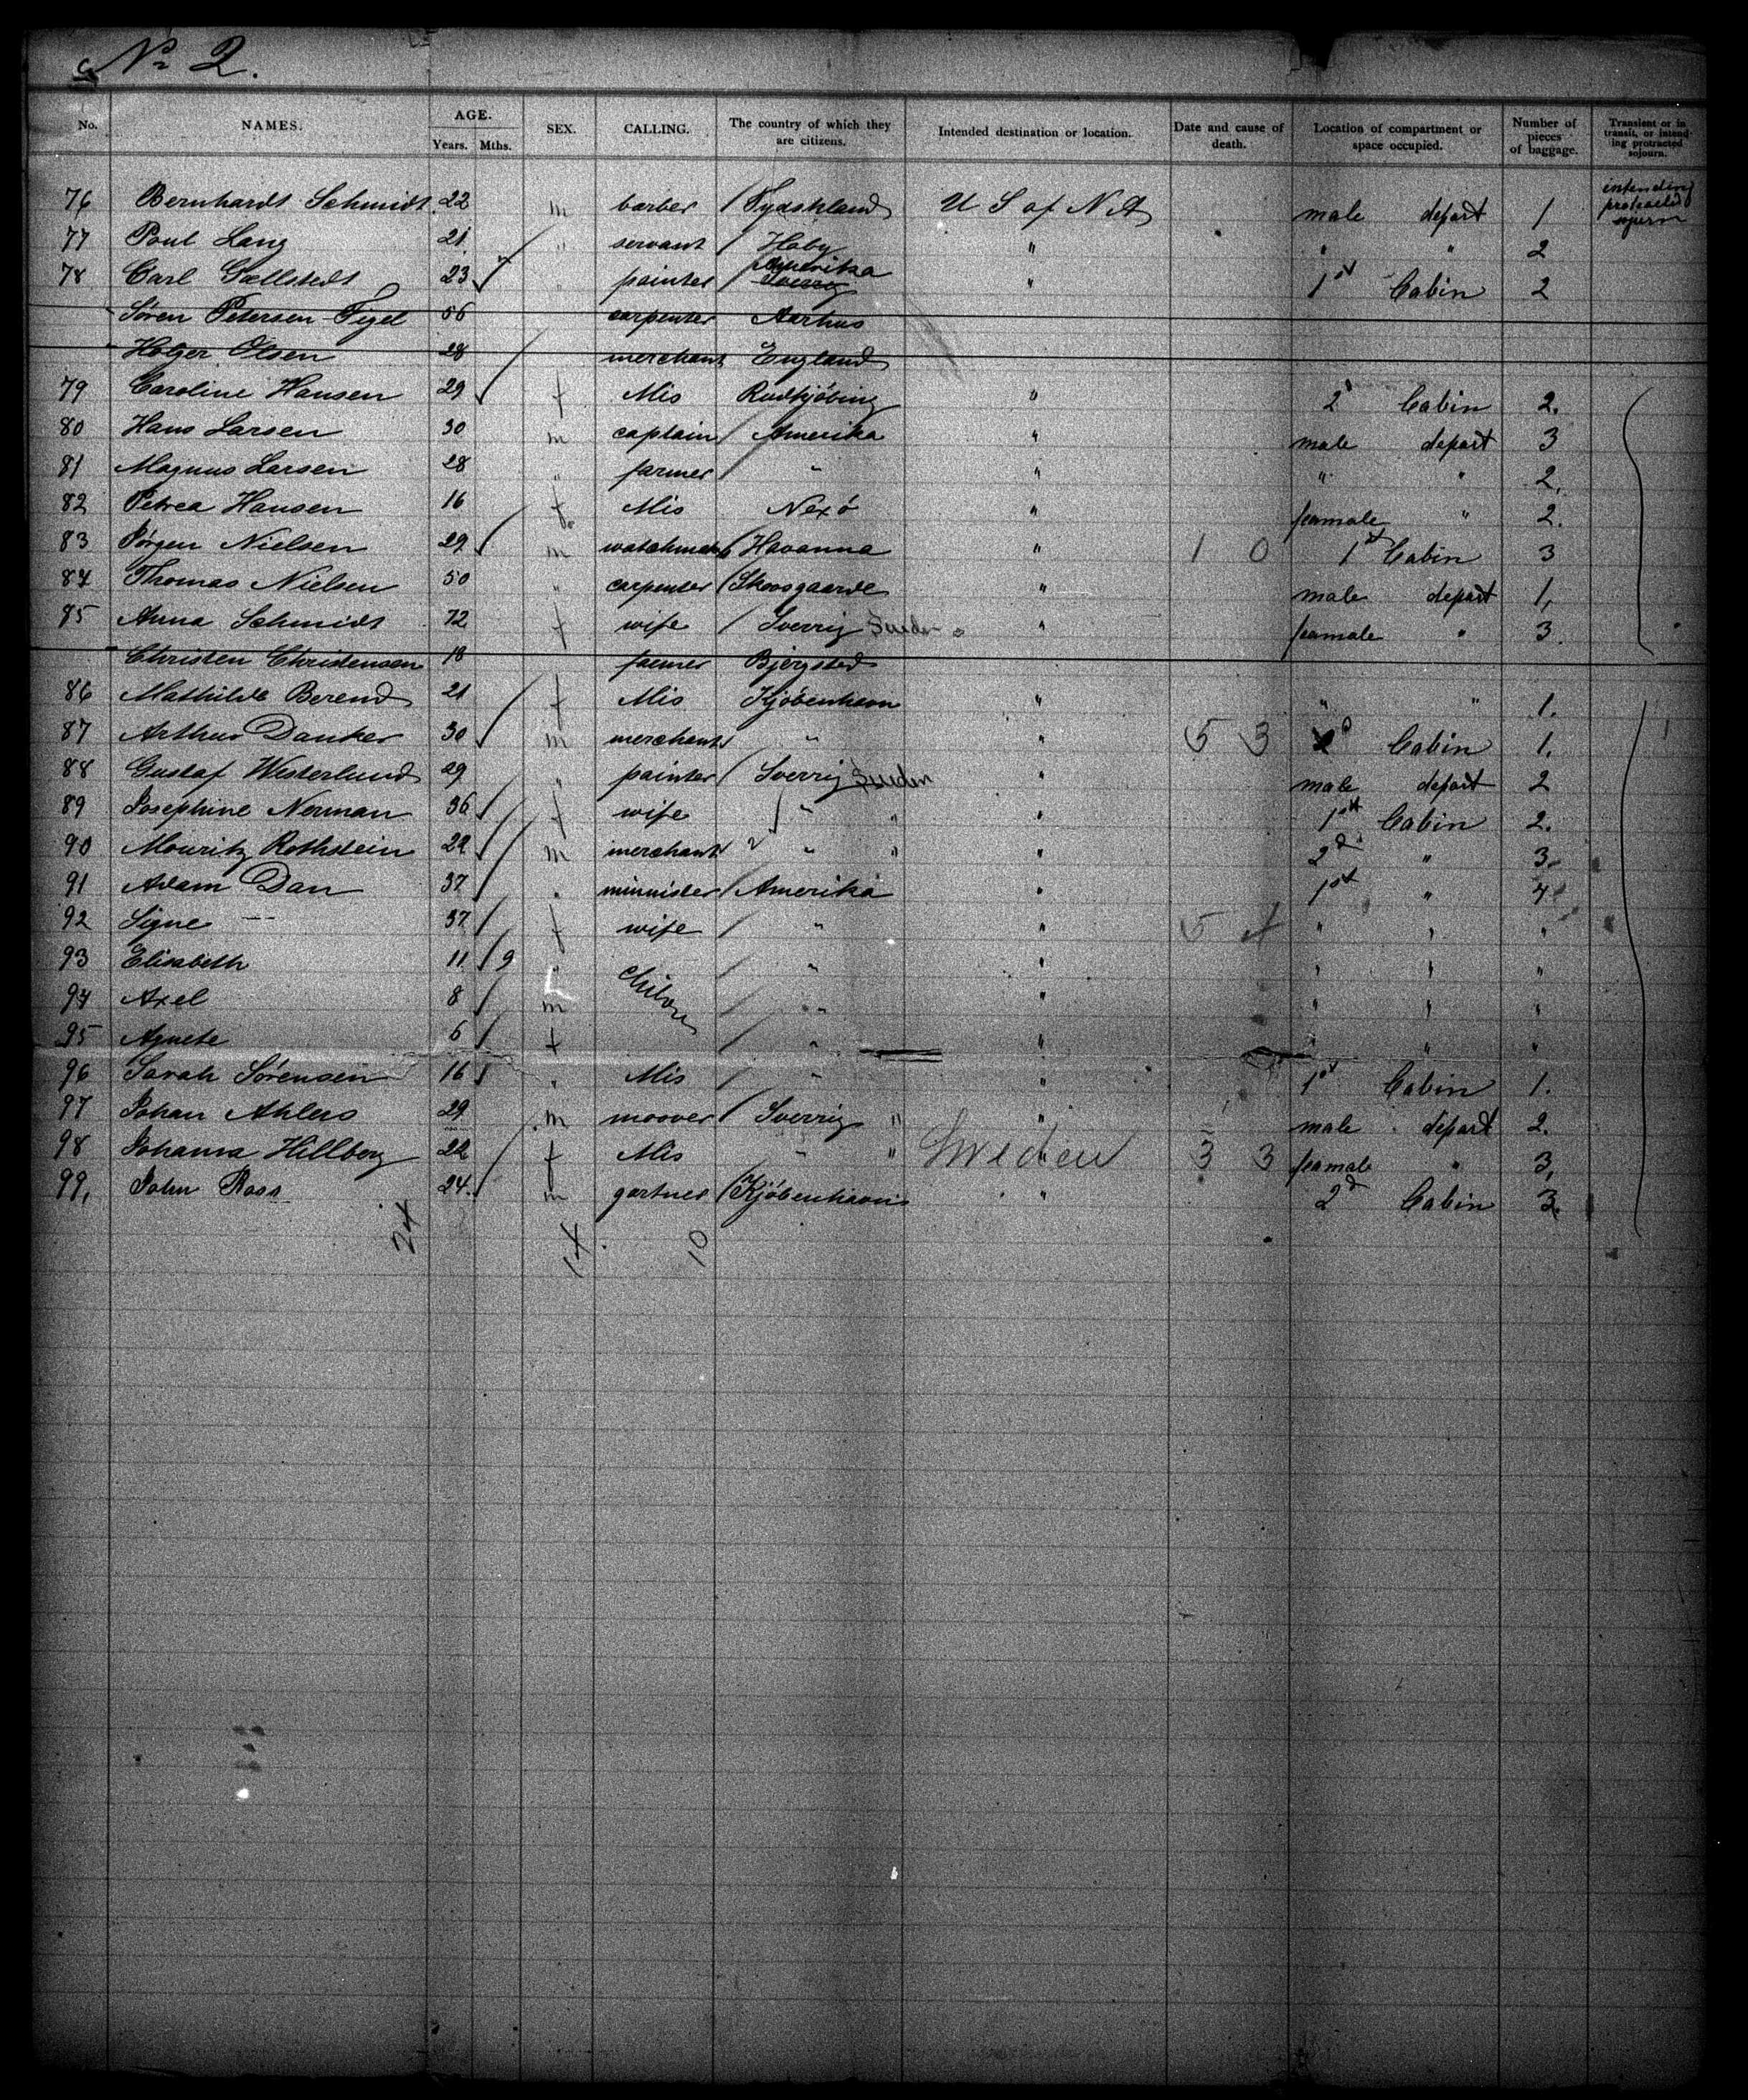 No 2.
No. NAMES. AGE. Years. Mths. SEX. CALLING. The country of which they are citizens. Intended destination or location. Date and cause of death. Location of compartment or space occupied. Number of pieces of baggage. Transient or in transit, or intending protracted sojourn.
76 Bernhardt Schmidt 22 m barber Tydskland U S of N A male depart 1 intending protracted sojurn
77 Poul Lang 21 " servant " " " 2
78 Carl 23 " painter Amerika Sverrig " 1st Cabin 2
Søren Petersen 56 carpenter Aarhus
Holger Olsen 28 merchant England
79 Caroline Hansen 29 f Mis Rudkjöbing " 2d Cabin 2.
80 Hans Larsen 30 m captain Amerika " male depart 3
81 Magnus Larsen 28 " farmer " " " " 2.
82 Petrea Hansen 16 f Mis Nexö " feamale " 2.
83 Jørgen Nielsen 29 m Havanna " 1 0 1st Cabin 3
84 Thomas Nielsen 50 " carpenter Skovsgaarde " male depart 1,
85 Anna Schmidt 72 f wife Sverrig Sweden " feamale " 3.
Christen Christensen 18 farmer Bjergsted
86 Mathilde Berend 21 f Mis Kjöbenhavn " " " 1.
87 Arthur Danker 30 m merchant " " 5 3 Cabin 1.
88 Gustaf Westerlund 29 " painter Sverrig Sweden " male depart 2
89 Josephine Norman 36 f wife " " " 1st Cabin 2.
90 Mouritz Rothstein 29 m merchant " " " 2d " 3.
91 Adam Dan 37 " minnister Amerika " 1st " 4
92 Signe — 37 f wife " " 5 4 " " "
93 Elisabeth 11 9 " Children " " " " "
94 Axel 8 m " " " " "
95 Agnete 6 f " " " " "
96 Sarah Sörensen 16 " Mis " " 1st Cabin 1.
97 Johan Ahlers 29 m moover Sverrig " " male depart 2.
98 Johanna Hillberg 22 f Mis " " Sweden 3 3 feamale " 3,
99, John Ross 24 m gartner Kjöbenhavn " 2d Cabin 3.
24 14 10